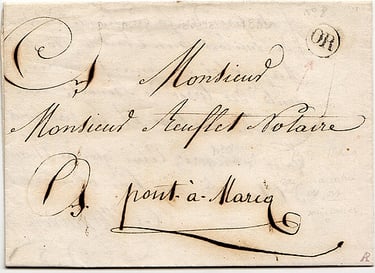 OR
à Monsieur
Monsieur Reufflet Notaire
à pont-à-Marcq